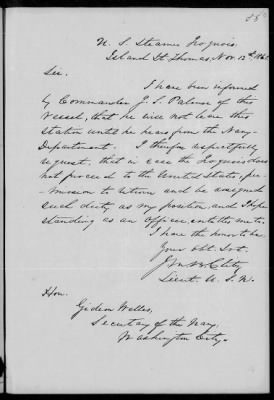 U. S. Steamer Iroquois
Island St. Thomas, Nov. 12th 186
Sir.
I have been informed
by Commander J. S. Palmer of this
Vessel, that he will not leave this
station until he hears from the Navy
Department. I therefore respectfully
request, that in case the Iroquois does
not proceed to the United States, per-
mission to return and be assigned
such duty as my position, and
standing as an Officer entitle me to.
I have the honor to be
Your Obt. Svt.
Lieut. U. S. N.
Hon.
Gideon Welles,
Secretary of the Navy,
Washington City.